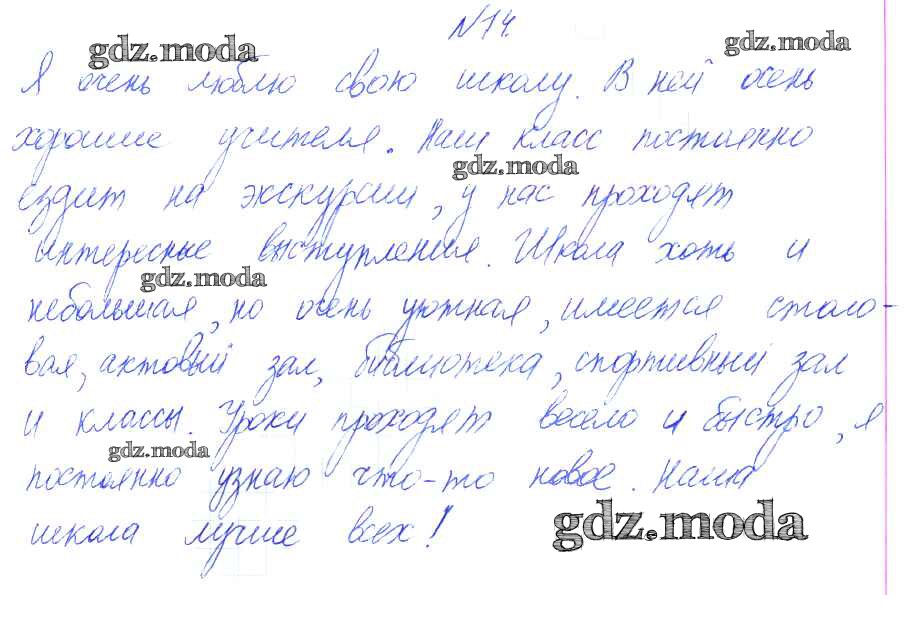 №14.
gdz.moda gdz.moda
Я очень люблю свою школу. В ней очень
хорошие учителя. Наш класс постоянно
gdz.moda
ездит на экскурсии, у нас проходят
интересные выступления. Школа хоть и
gdz.moda
небольшая, но очень уютная, имеется столо-
вая, актовый зал, библиотека, спортивный зал
и классы. Уроки проходят весело и быстро, я
gdz.moda
постоянно узнаю что-то новое. Наша
школа лучше всех!
gdz.moda